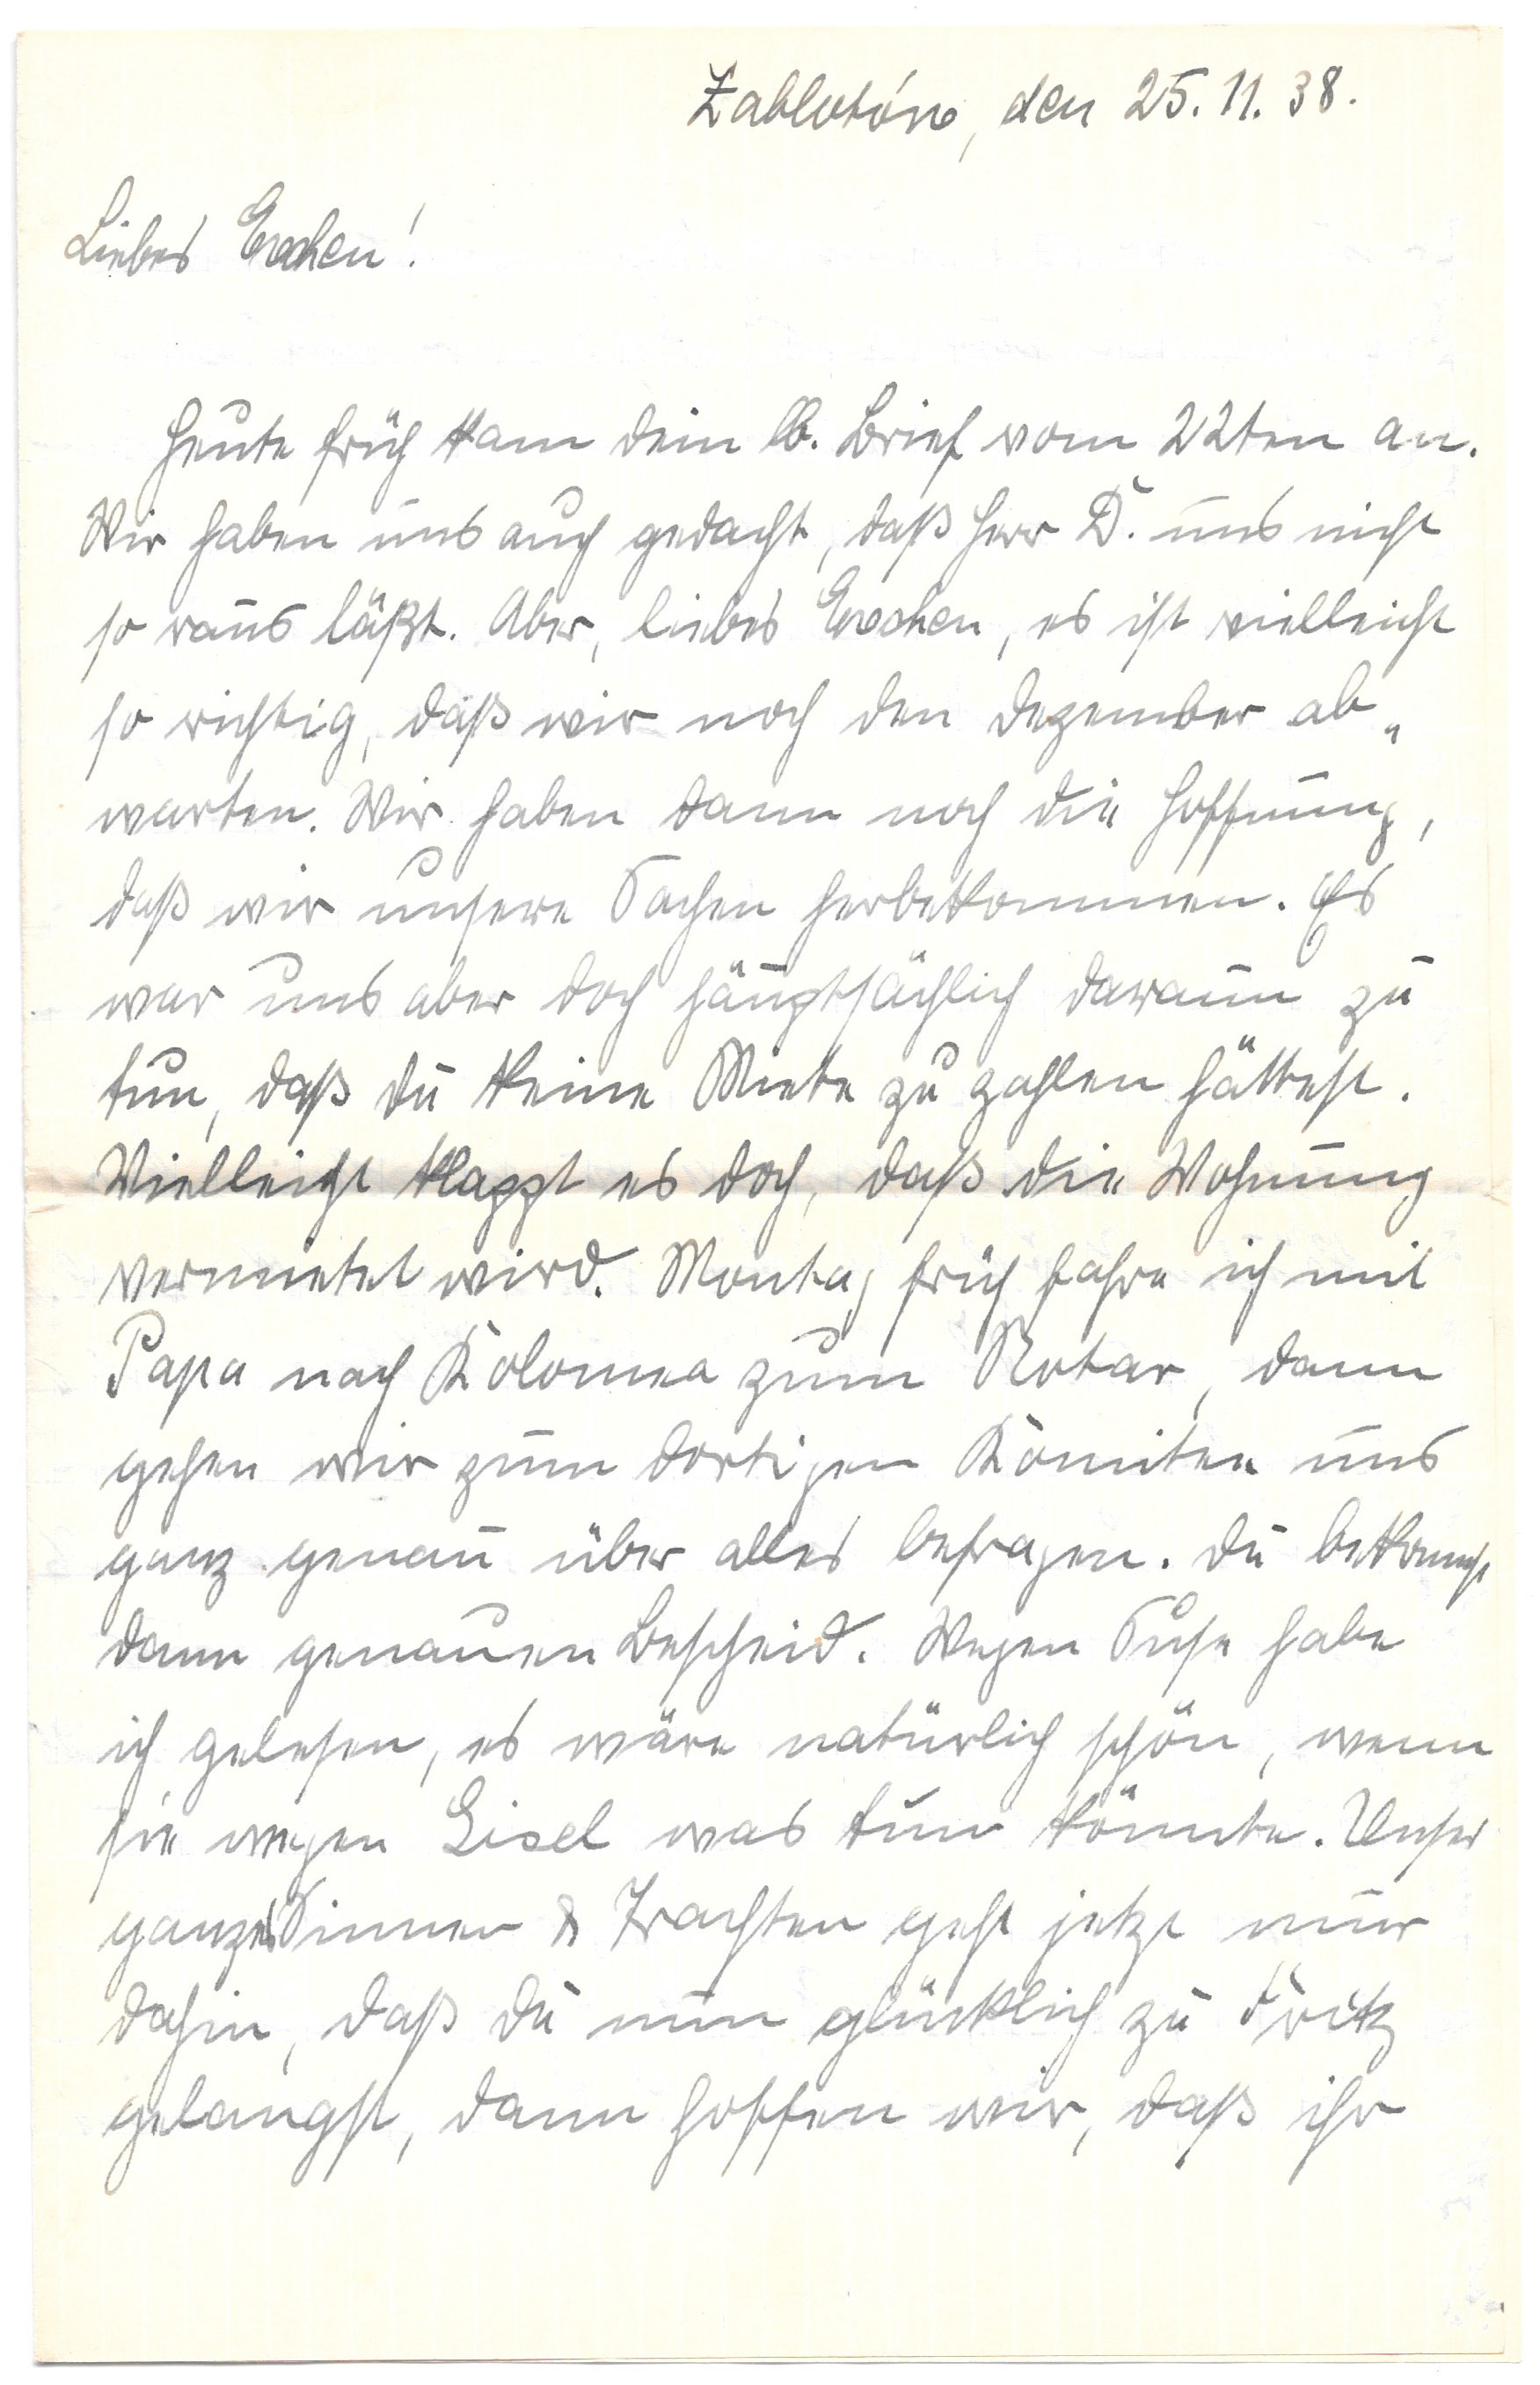 Zablotów, den 25.11.38.
Liebes Evchen!
Heute früh kam dein lb. Brief vom 22ten an.
Wir haben uns auch gedacht, daß Herr D. uns nicht
so raus läßt. Aber, liebes Evchen, es ist vielleicht
so richtig, daß wir noch den Dezember ab-
warten. Wir haben dann noch die Hoffnung,
daß wir unsere Sachen herbekommen. Es
war uns aber doch hauptsächlich darum zu
tun, daß du keine Miete zu zahlen hättest.
Vielleicht klappt es doch, daß die Wohnung
vermietet wird. Montag früh fahre ich mit
Papa nach Kolomea zum Notar, dann
gehen wir zum dortigen Komitee uns
ganz genau über alles befragen. Du bekommst
dann genauen Bescheid. Wegen Suse habe
ich gelesen, es wäre natürlich schön, wenn
sie wegen Gisel was tun könnte. Unser
ganzes Sinnen & Trachten geht jetzt nur
dahin, daß du nun glücklich zu Fritz
gelangst, dann hoffen wir, daß ihr